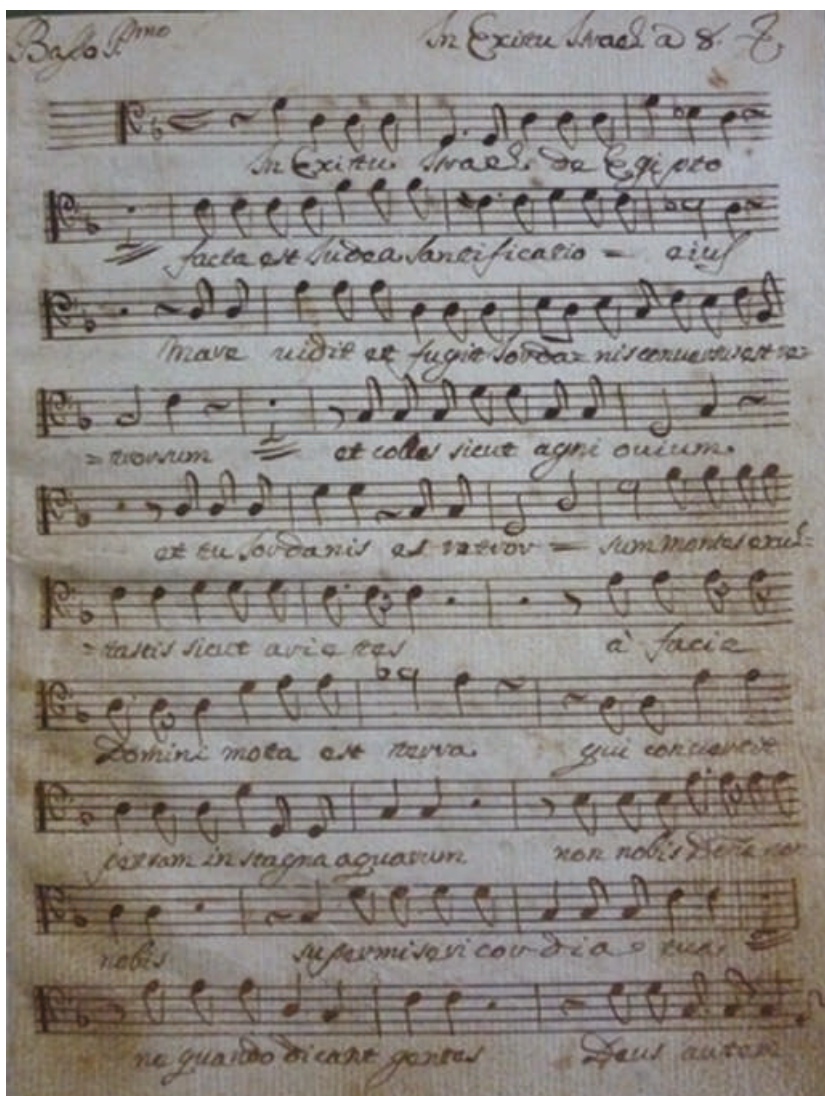 Baso P.mo In Exitu Israel a 8.
In Exitu Israel de Egipto
facta est Iudea santificatio = eius
Mare uidit et fugit Iorda= nis conuersus est re=
=trorsum et colles sicut agni ouium.
et tu Iordanis es retror = sum montes exul=
=tastis sicut arietes à facie
Domini mota est terra. qui conuertit
petram in stagna aquarum non nobis Dñe non
nobis super misericordia = tua
ne quando dicant gentes Deus autem